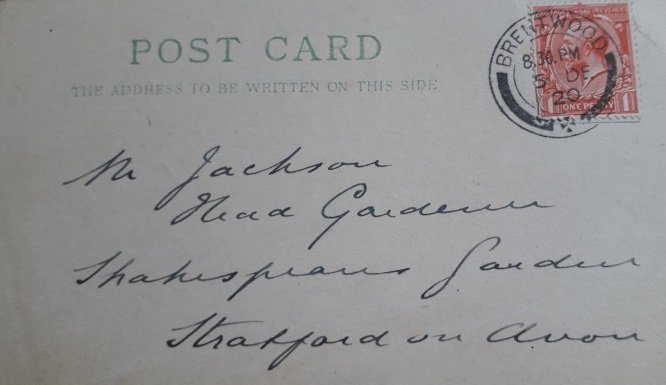 POST CARD
THE ADDRESS TO BE WRITTEN ON THIS SIDE
BRENTWOOD
8.30.PM
5 DE
20
ONE PENNY
Mr Jackson
Head Gardener
Shakespeares Garden
Stratford on Avon